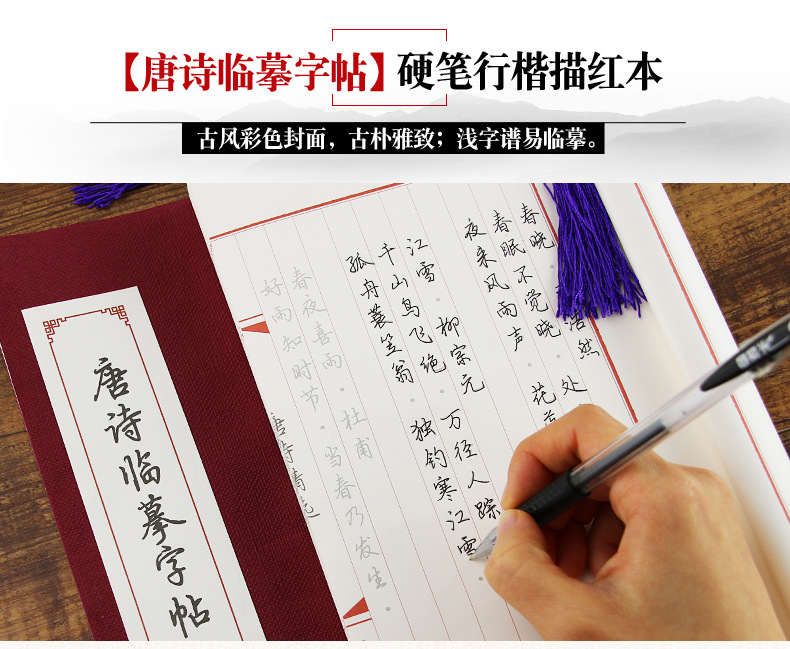 【唐诗临摹字帖】硬笔行楷描红本
古风彩色封面，古朴雅致；浅字谱易临摹。
春晓。 浩然
春眠不觉晓。处
夜来风雨声。花
江雪。柳宗元
千山鸟飞绝。万径人踪
孤舟蓑笠翁。独钓寒江雪。
春夜喜雨。杜甫
好雨知时节。当春乃发生。
唐诗精
唐诗临摹字帖